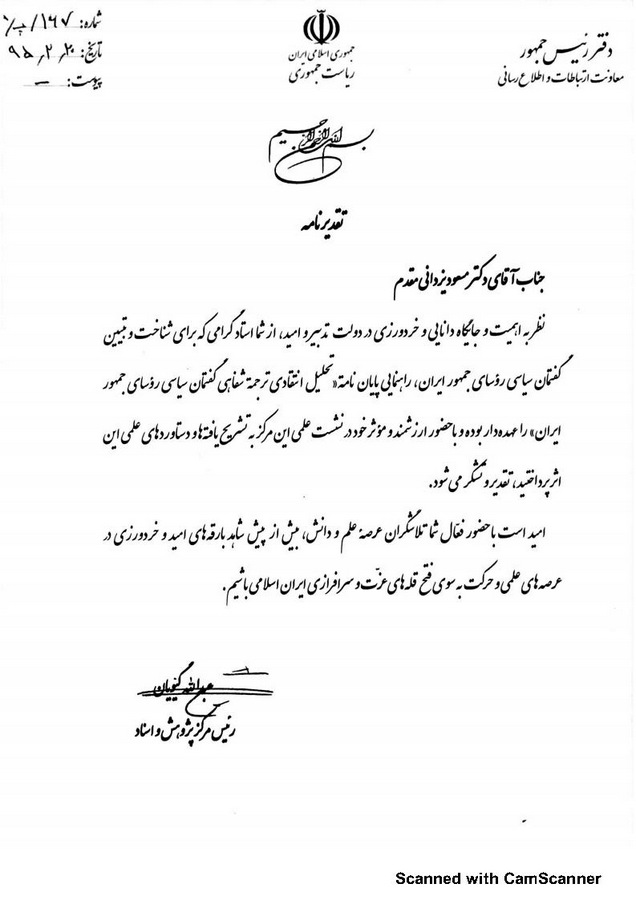 دفتر رئیس جمهور
معاونت ارتباطات و اطلاع رسانی
جمهوری اسلامی ایران
ریاست جمهوری
شماره: ۱۶۷/پ
تاریخ: ۹۵٫۲٫۲۰
پیوست: —
بسم الله الرحمن الرحیم
تقدیرنامه
جناب آقای دکتر مسعود یزدانی مقدم
نظر به اهمیت و جایگاه دانایی و خردورزی در دولت تدبیر و امید، از شما استاد گرامی که برای شناخت و تبیین
گفتمان سیاسی رؤسای جمهور ایران، راهنمایی پایان نامهٔ «تحلیل انتقادی ترجمهٔ شفاهی گفتمان سیاسی رؤسای جمهور
ایران» را عهده دار بوده و با حضور ارزشمند و مؤثر خود در نشست علمی این مرکز به تشریح یافته ها و دستاوردهای علمی این
اثر پرداختید، تقدیر و تشکر می شود.
امید است با حضور فعّال شما تلاشگران عرصهٔ علم و دانش، بیش از پیش شاهد بارقه های امید و خردورزی در
عرصه های علمی و حرکت به سوی فتح قله های عزّت و سرافرازی ایران اسلامی باشیم.
عبدالله گیویان
رئیس مرکز پژوهش و اسناد
Scanned with CamScanner